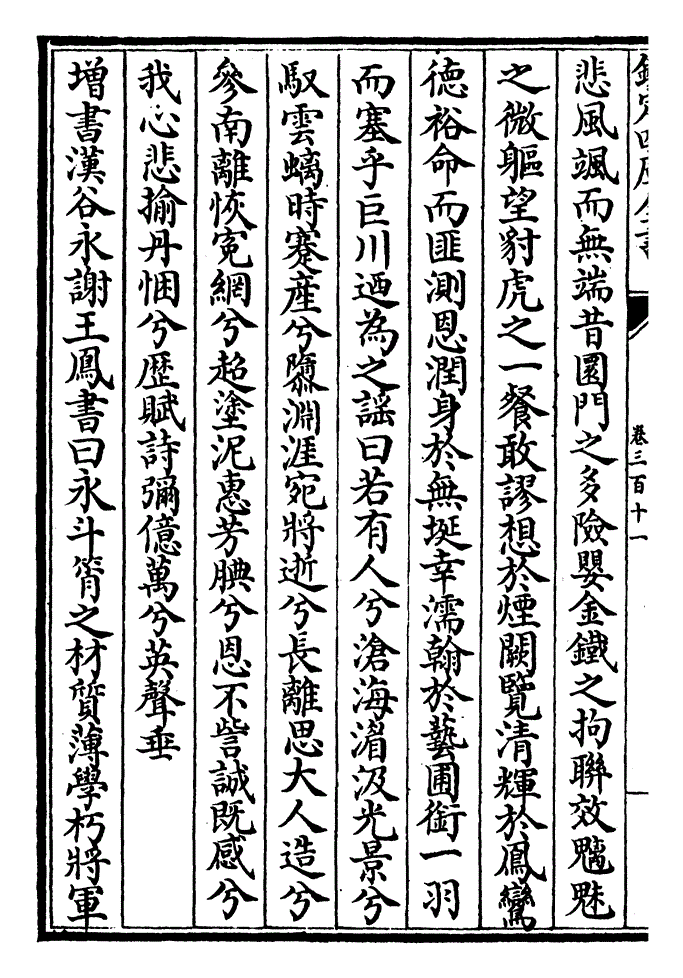 欽定四庫全書
卷三百十一
悲風颯而無端昔圜門之多險嬰金鐵之拘聯效魑魅
之微軀望豺虎之一餐敢謬想於煙闕覽清輝於鳳鸞
德裕命而匪測恩潤身於無埏幸濡翰於藝圃銜一羽
而塞乎巨川迺為之謡曰若有人兮滄海湄汲光景兮
馭雲螭時蹇産兮隳淵涯宛將逝兮長離思大人造兮
參南離恢寃網兮超塗泥惠芳腆兮恩不訾誠既感兮
我心悲揄丹悃兮歴賦詩彌億萬兮英聲垂
増書漢谷永謝王鳳書曰永斗筲之材質薄學朽將軍